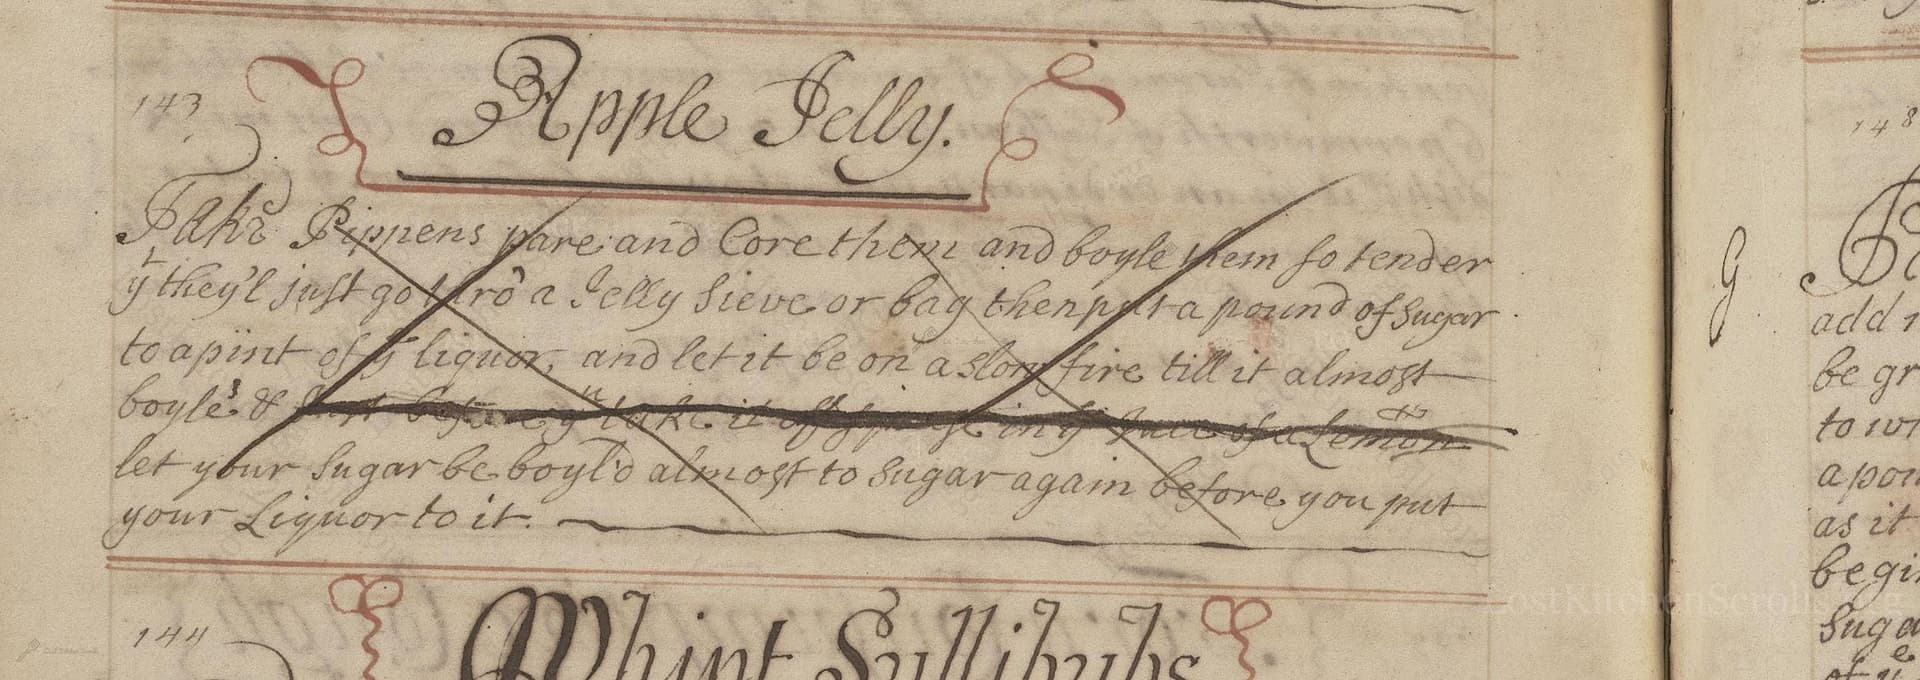 143
Apple Jelly.
Take Pippens pare and Core them and boyle them so tender
yt they'l just go thrô a Jelly Sieve or bag then put a pound of Sugar
to a pint of ye liquor, and let it be on a slow fire till it almost
boyle's & just before yn take it off in ye Juce of a Lemon
let your Sugar be boyl'd almost to Sugar again before you put
your Liquor to it.
144
Whipt Sullibubs
148
G
add
be gr
to
a
as it
begi
Suga
of ye
LostKitchenScrolls